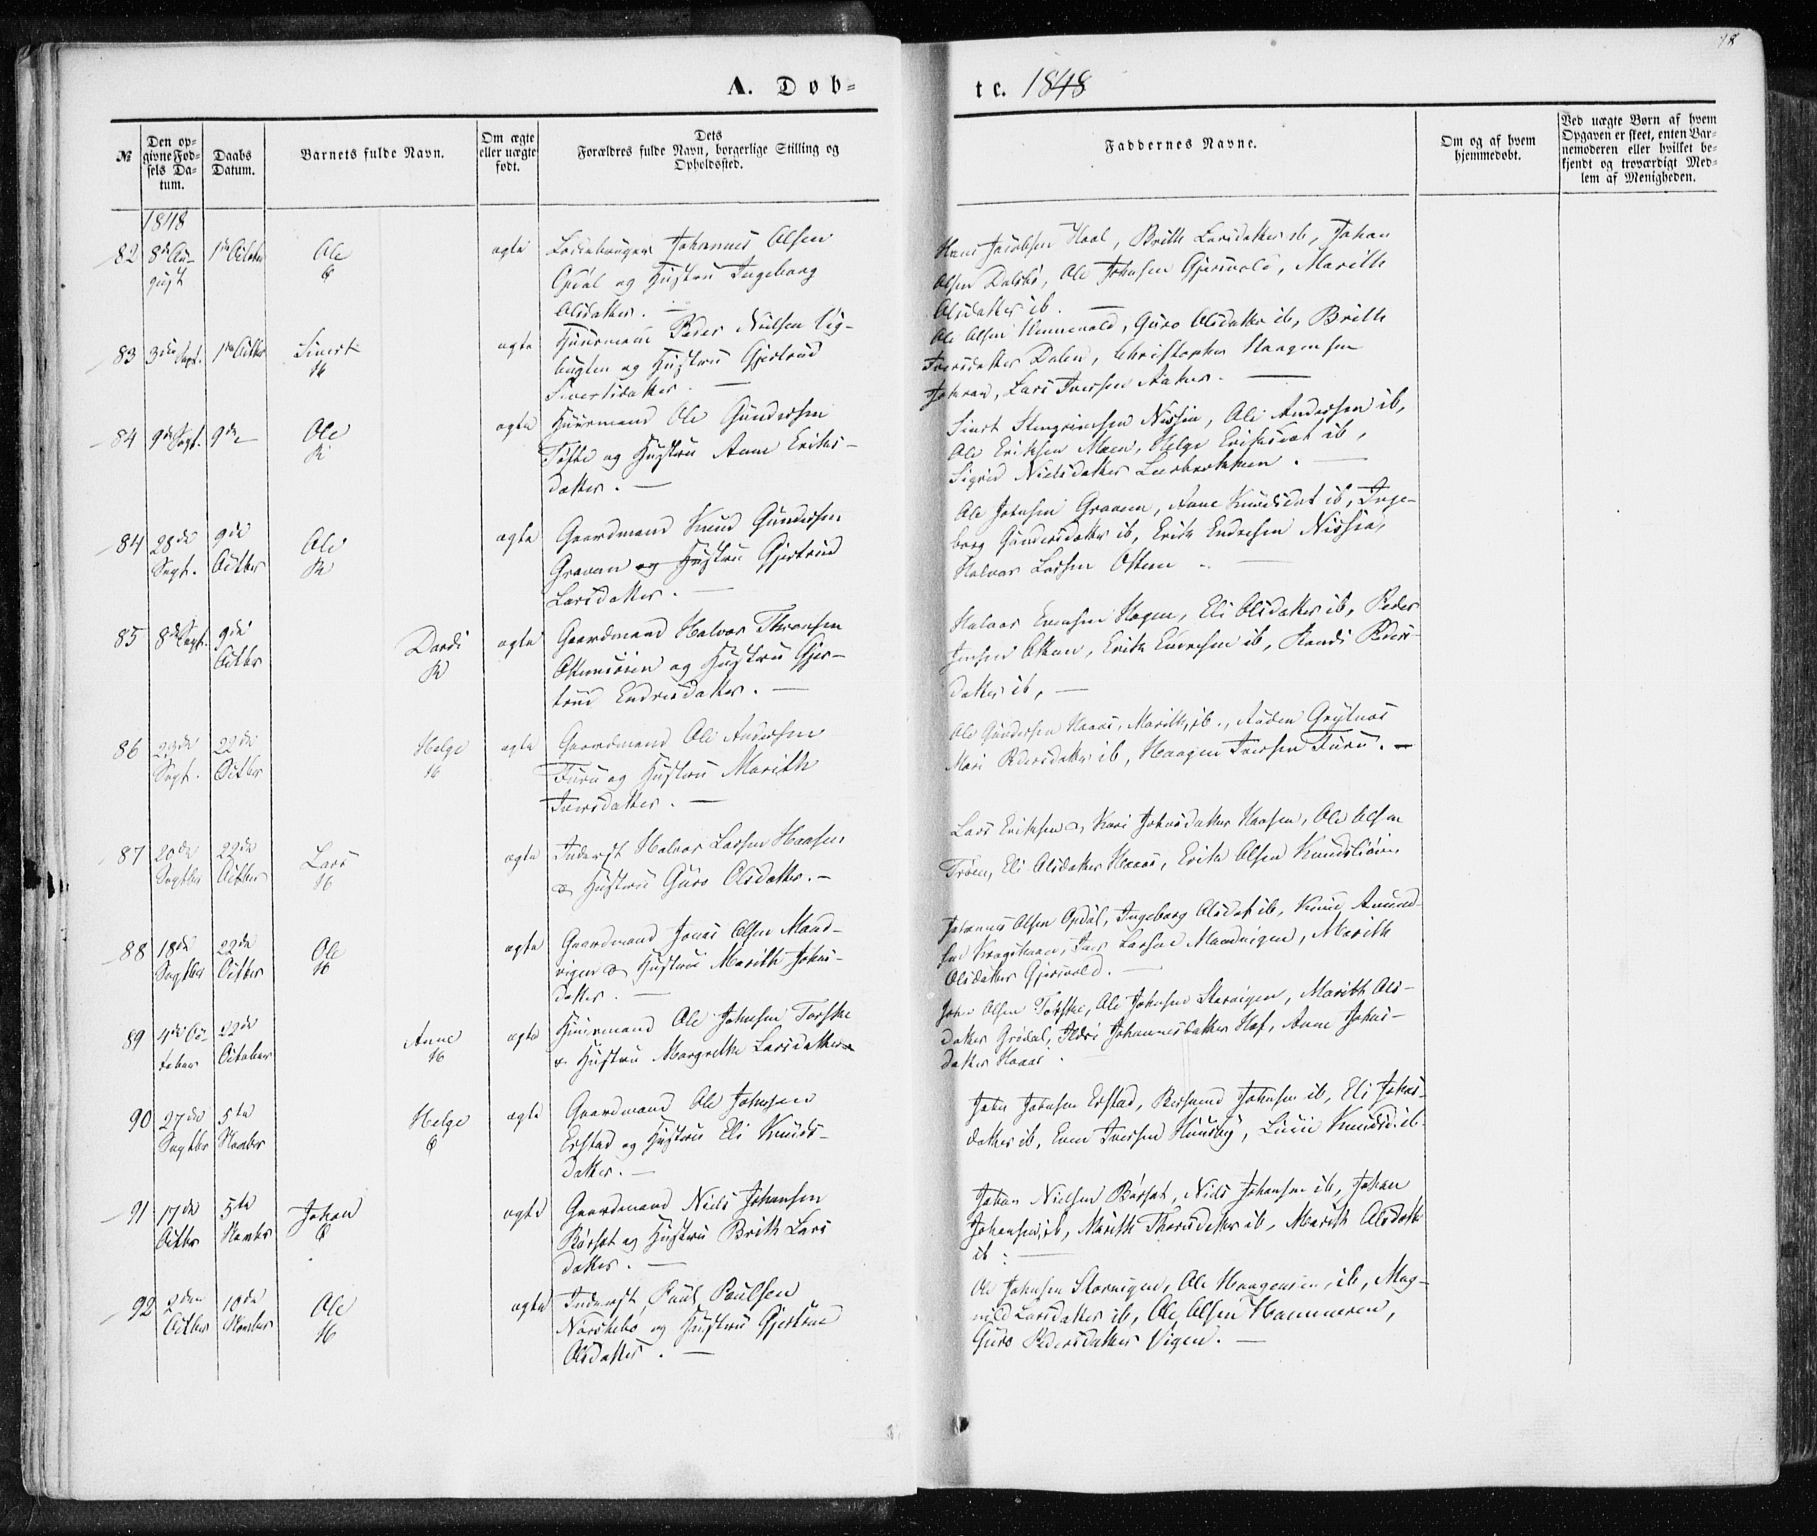 A. Døb-
te. 1848
18
№
Den op-
givne Fød-
sels Da-
tum.
Daabs
Datum.
Barnets fulde Navn.
Om ægte
eller uægte
født.
Dets
Forældres fulde Navn, borgerlige Stilling og
Opholdssted.
Faddernes Navne.
Om og af hvem
hjemmedøbt.
Ved uægte Børn af hvem
Opgaven er skeet, enten Bar-
nemoderen eller hvilket be-
kjendt og troværdigt Med-
lem af Menigheden.
1848
82 8de Au- 1ste October Ole ægte Johannes Olsen
gust Opdal og Hustru Ingeborg
Olsdatter. —
Hans Jacobsen Hool, Brith Larsdatter ib, Johan
Olsen Dalsbø, Ole Johnsen Gjersvold, Marith
Olsdatter ib. —
83 3die Sept. 1ste Octbr Sivert ægte Huusmand Peder Nielsen Vig-
H bugten og Hustru Gjertrud
Sivertsdatter. —
Ole Olsen Hennevold, Guro Olsdatter ib, Brith
Iversdatter Dalen, Christopher Haagensen
Lars Iversen Aaker. —
84 9de Sept. 9de — Ole ægte Huusmand Ole Gundersen
K og Hustru Anne Eriks-
datter. —
Sivert Stengrimsen Nissen, Ole Andersen ib,
Ole Eriksen Moen, Helge Eriksdat ib,
Sigrid Nielsdatter —
84 28de 9de Ole ægte Gaardmand Knud Gundersen
Sept. Octbr K Graven og Hustru Gjertrud
Larsdatter. —
Ole Johnsen Graven, Anne Knudsdat ib, Inge-
borg Gundersdatter ib, Erik Endresen Nissen,
Halvor Larsen —
85 8de Sept. 9de Dordi ægte Gaardmand Halvor Thronsen
Octbr K og Hustru Gjer-
trud Endresdatter. —
Halvor Evensen Hagen, Eli Olsdatter ib, Peder
Jensen Erik Endresen ib, Randi Peders-
datter ib, —
86 23de 22de Helge ægte Gaardmand Ole Andersen
Sept. Octbr H Furu og Hustru Marith
Iversdatter. —
Ole Gundersen Haaas, Marith ib., Anden Grytnes
Mari Pedersdatter ib, Haagen Iversen Furu. —
87 20de 22de Lars ægte Inderst Halvor Larsen Haasen
Septbr Octbr H & Hustru Guro Olsdatter. —
Lars Eriksen & Kari Johnsdatter Haasen, Ole Olsen
Trøen, Eli Olsdatter Haaas, Erik Olsen
88 18de 22de Ole ægte Gaardmand Jonas Olsen Mand-
Septbr Octbr H vigen & Hustru Marith Johns-
datter. —
Johannes Olsen Opdal, Ingeborg Olsdat ib, Knud Amund-
sen Iver Larsen Mandvigen, Marith
Olsdatter Gjersvold. —
89 4de Oc- 22de Anne ægte Huusmand Ole Johnsen Torske
tober October H & Hustru Margrethe Larsdatter
John Olsen Torske, Ole Johnsen Storvigen, Marith Ols-
datter Grødal, Ildri Johannesdatter Hof, Anne Johns-
datter Haaas.
90 27de 5te Helge ægte Gaardmand Ole Johnsen
Septbr Novbr Ø Erstad og Hustru Eli Knuds-
datter. —
John Johnsen Erstad, Johnsen ib, Eli Johns-
datter ib, Even Iversen Huusby, Knudsd. ib
91 17de 5te Johan ægte Gaardmand Niels Johansen
Octbr Novbr Ø Børset og Hustru Brith Lars
datter. —
Johan Nielsen Børset, Niels Johansen ib, Johan
Johansen ib, Marith Thoresdatter ib, Marith Olsdatter
ib. —
92 2den 10de Ole ægte Inderst Paul Paulsen
Octbr Novbr H Norskebø og Hustru Gjertrud
Olsdatter. —
Ole Johnsen Storvigen, Ole Haagensen ib, Mag-
nild Larsdatter ib, Ole Olsen Hammeren,
Guro Pedersdatter Vigen. —